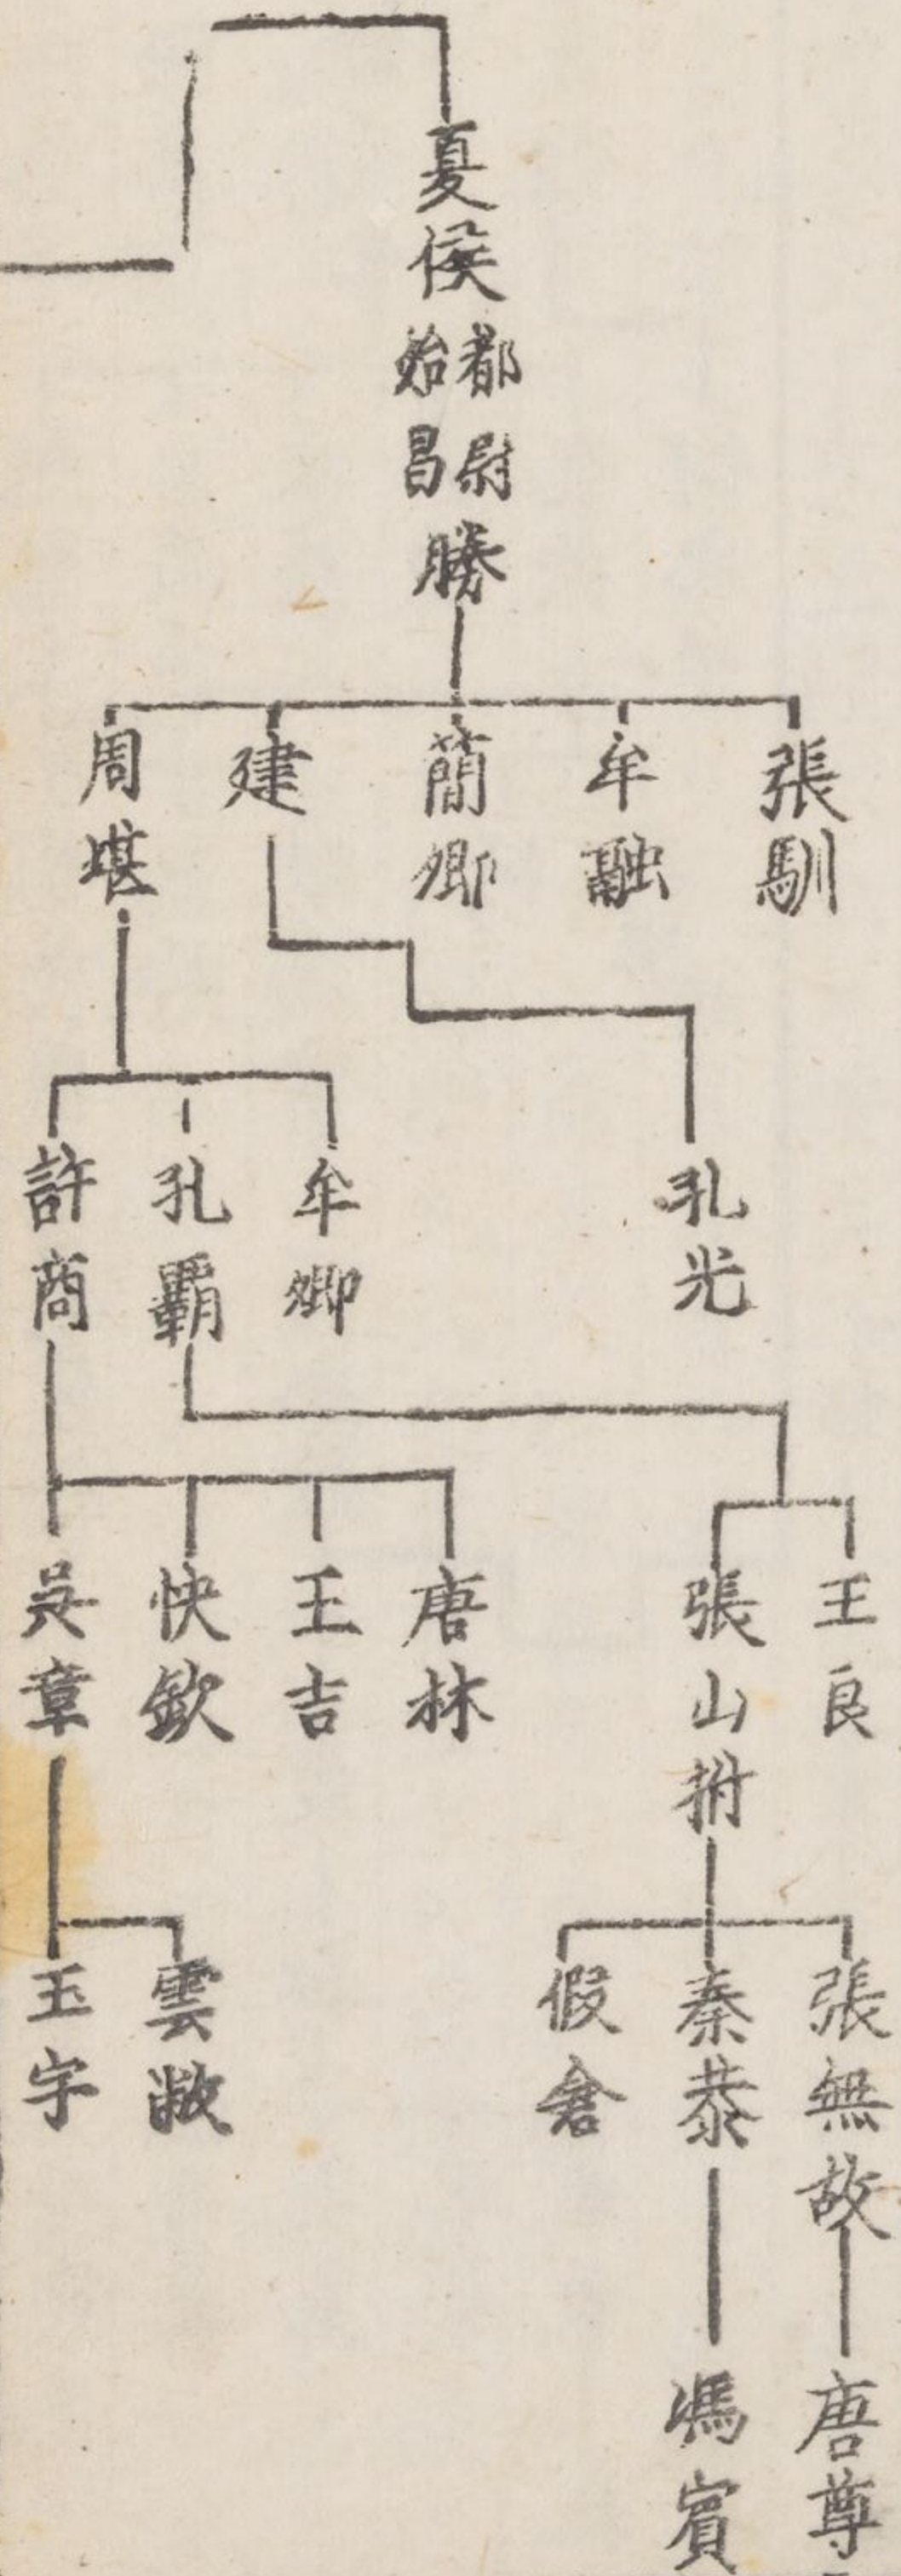 夏侯
都尉
始昌
勝
張馴
牟融
簡卿
建
周堪
孔光
牟卿
孔霸
許商
王良
張山拊
唐林
王吉
快欽
吳章
張無故
秦恭
假倉
雲敞
玉宇
唐尊
馮賓